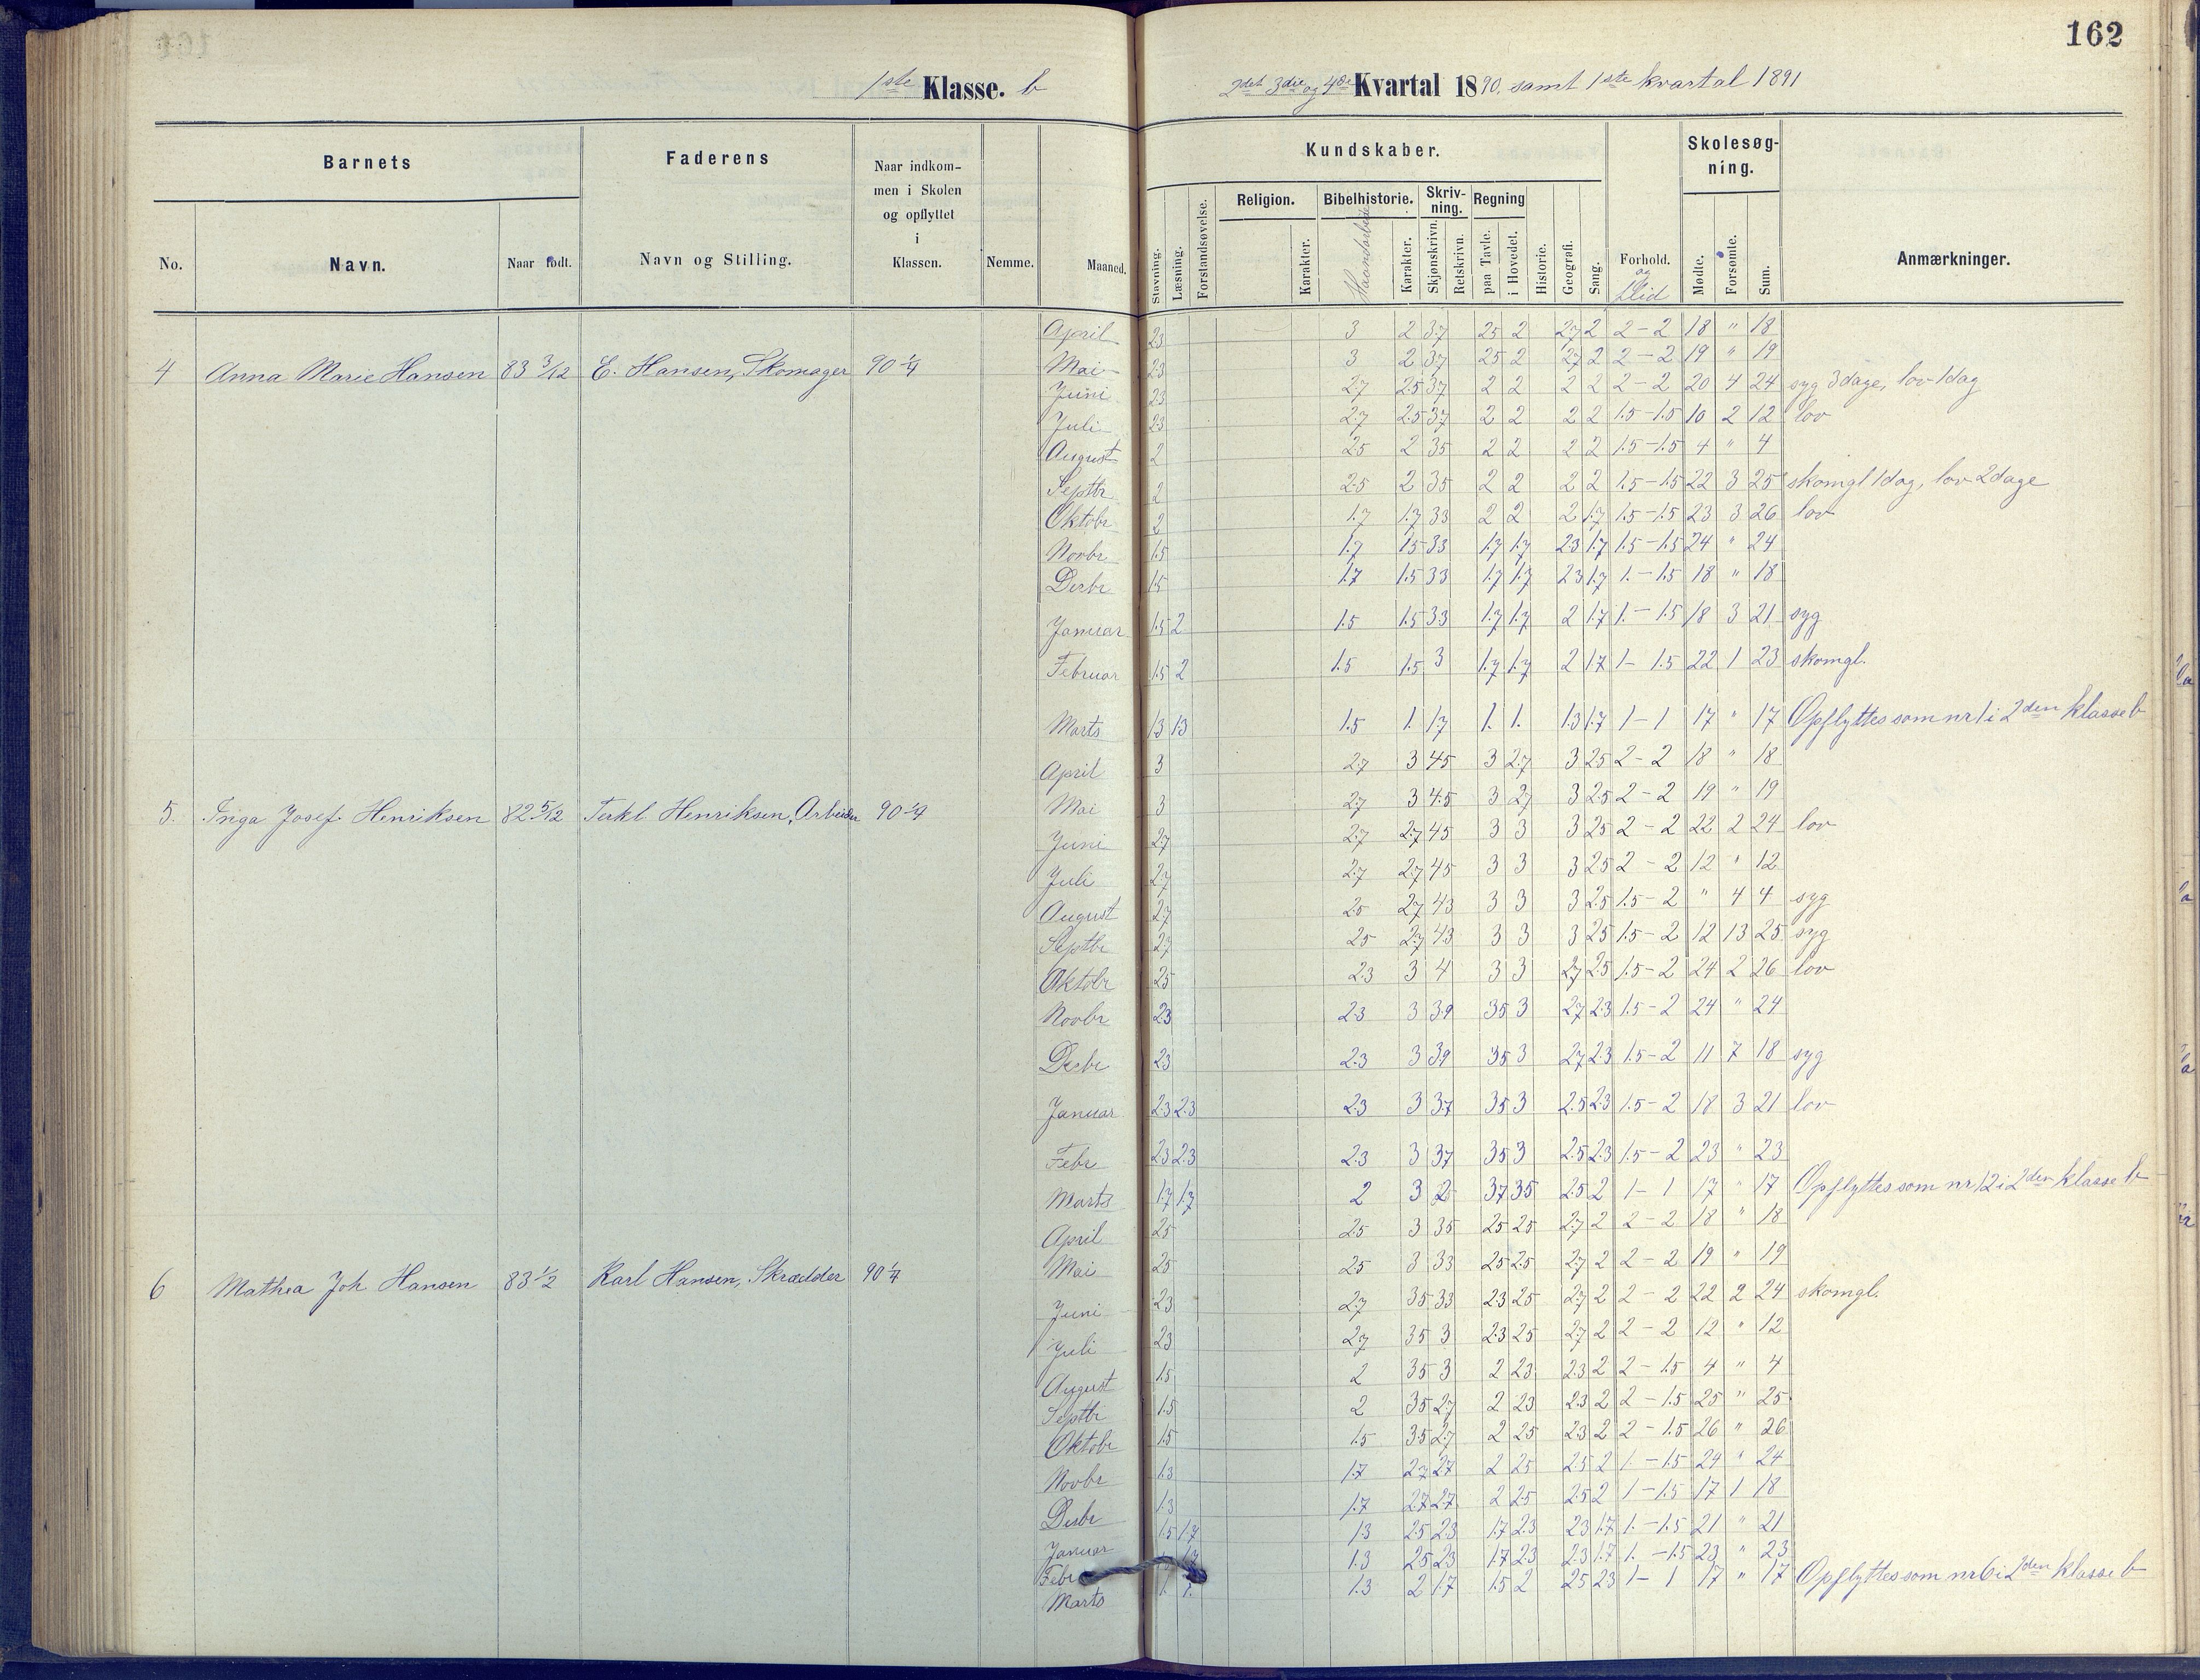 162
1ste Klasse. b
2det 3die og 4de Kvartal 1890, samt 1ste kvartal 1891
Barnets
Faderens
Naar indkommen i Skolen og opflyttet i Klassen.
Kundskaber.
Skolesøgning.
No.
Navn.
Naar født.
Navn og Stilling.
Nemme.
Maaned.
Stavning.
Læsning.
Forstandsøvelse.
Religion.
Karakter.
Bibelhistorie.
Haandarbeide
Karakter.
Skrivning.
Skjønskrivn.
Retskrivn.
Regning
paa Tavle.
i Hovedet.
Historie.
Geografi.
Sang.
Forhold.
og Flid
Mødte.
Forsømte.
Sum.
Anmærkninger.
4 Anna Marie Hansen 83 3/12 E. Hansen, Skomager 90 1/4
April 2.3 3 2 3.7 2.5 2 2.7 2 2-2 18 " 18
Mai 2.3 3 2 3.7 2.5 2 2.7 2 2-2 19 " 19
Juni 2.3 2.7 2.5 3.7 2 2 2 2 2-2 20 4 24 syg 3 dage, lov 1 dag
Juli 2.3 2.7 2.5 3.7 2 2 2 2 1.5-1.5 10 2 12 lov
August 2 2.5 2 3.5 2 2 2 2 1.5-1.5 4 " 4
Septbr 2 2.5 2 3.5 2 2 2 2 1.5-1.5 22 3 25 skomgl 1 dag, lov 2 dage
Oktobr 2 1.7 1.7 3.3 2 2 2 1.7 1.5-1.5 23 3 26 lov
Novbr 1.5 1.7 1.5 3.3 1.7 1.7 2.3 1.7 1.5-1.5 24 " 24
Desbr 1.5 1.7 1.5 3.3 1.7 1.7 2.3 1.7 1.-1.5 18 " 18
Januar 1.5 2 1.5 1.5 3.3 1.7 1.7 2 1.7 1.-1.5 18 3 21 syg
Februar 1.5 2 1.5 1.5 3 1.7 1.7 2 1.7 1-1.5 22 1 23 skomgl.
Marts 1.3 1.3 1.5 1. 1.7 1. 1. 1.3 1.7 1-1 17 " 17 Opflyttes som nr 1 i 2den klasse b
5. Inga Josef. Henriksen 82 5/12 Terkl Henriksen, Arbeider 90 1/4
April 3 2.7 3 4.5 3 2.7 3 2.5 2-2 18 " 18
Mai 3 2.7 3 4.5 3 2.7 3 2.5 2-2 19 " 19
Juni 2.7 2.7 2.7 4.5 3 3 3 2.5 2-2 22 2 24 lov
Juli 2.7 2.7 2.7 4.5 3 3 3 2.5 2-2 12 " 12
August 2.7 2.5 2.7 4.3 3 3 3 2.5 1.5-2 " 4 4 syg
Septbr 2.7 2.5 2.7 4.3 3 3 3 2.5 1.5-2 12 13 25 syg
Oktobr 2.5 2.3 3 4 3 3 2.7 2.5 1.5-2 24 2 26 lov
Novbr 2.3 2.3 3 3.9 3.5 3 2.7 2.3 1.5-2 24 " 24
Desbr 2.3 2.3 3 3.9 3.5 3 2.7 2.3 1.5-2 11 7 18 syg
Januar 2.3 2.3 2.3 3 3.7 3.5 3 2.5 2.3 1.5-2 18 3 21 lov
Febr 2.3 2.3 2.3 3 3.7 3.5 3 2.5 2.3 1.5-2 23 " 23
Marts 1.7 1.7 2 3 2 3.7 3.5 2.5 2 1-1 17 " 17 Opflyttes som nr 12 i 2den klasse b
6 Mathea Joh Hansen 83 1/2 Karl Hansen, Skrædder 90 1/4
April 2.5 2.5 3 3.5 2.5 2.5 2.7 2 2-2 18 " 18
Mai 2.5 2.5 3 3.3 2.5 2.5 2.7 2 2-2 19 " 19
Juni 2.3 2.7 3.5 3.3 2.3 2.5 2.7 2 2-2 22 2 24 skomgl.
Juli 2.3 2.7 3.5 3 2.3 2.5 2.7 2 2-2 12 " 12
August 1.5 2 3.5 3 2 2.3 2.3 2 2-1.5 4 " 4
Septbr 1.5 2 3.5 2.7 2 2.3 2.3 2 2-1.5 25 " 25
Oktobr 1.5 1.5 3.5 2.7 2 2.5 2.3 2 2-1.5 26 " 26
Novbr 1.3 1.7 2.7 2.7 2 2.5 2.5 2 1.-1.5 24 " 24
Desbr 1.3 1.7 2.7 2.7 2 2.5 2.5 2 1-1.5 17 1 18
Januar 1.5 1.7 1.3 2.5 2.3 1.7 2.3 2.3 1.7 1.-1.5 21 " 21
Febr 1.3 2.5 2.3 1.7 2.3 2.3 1.7 1.-1.5 23 " 23
Marts 1. 1. 1.3 2 1.7 1.5 2 2.5 2.3 1-1 17 " 17 Opflyttes som nr 6 i 2den klasse b